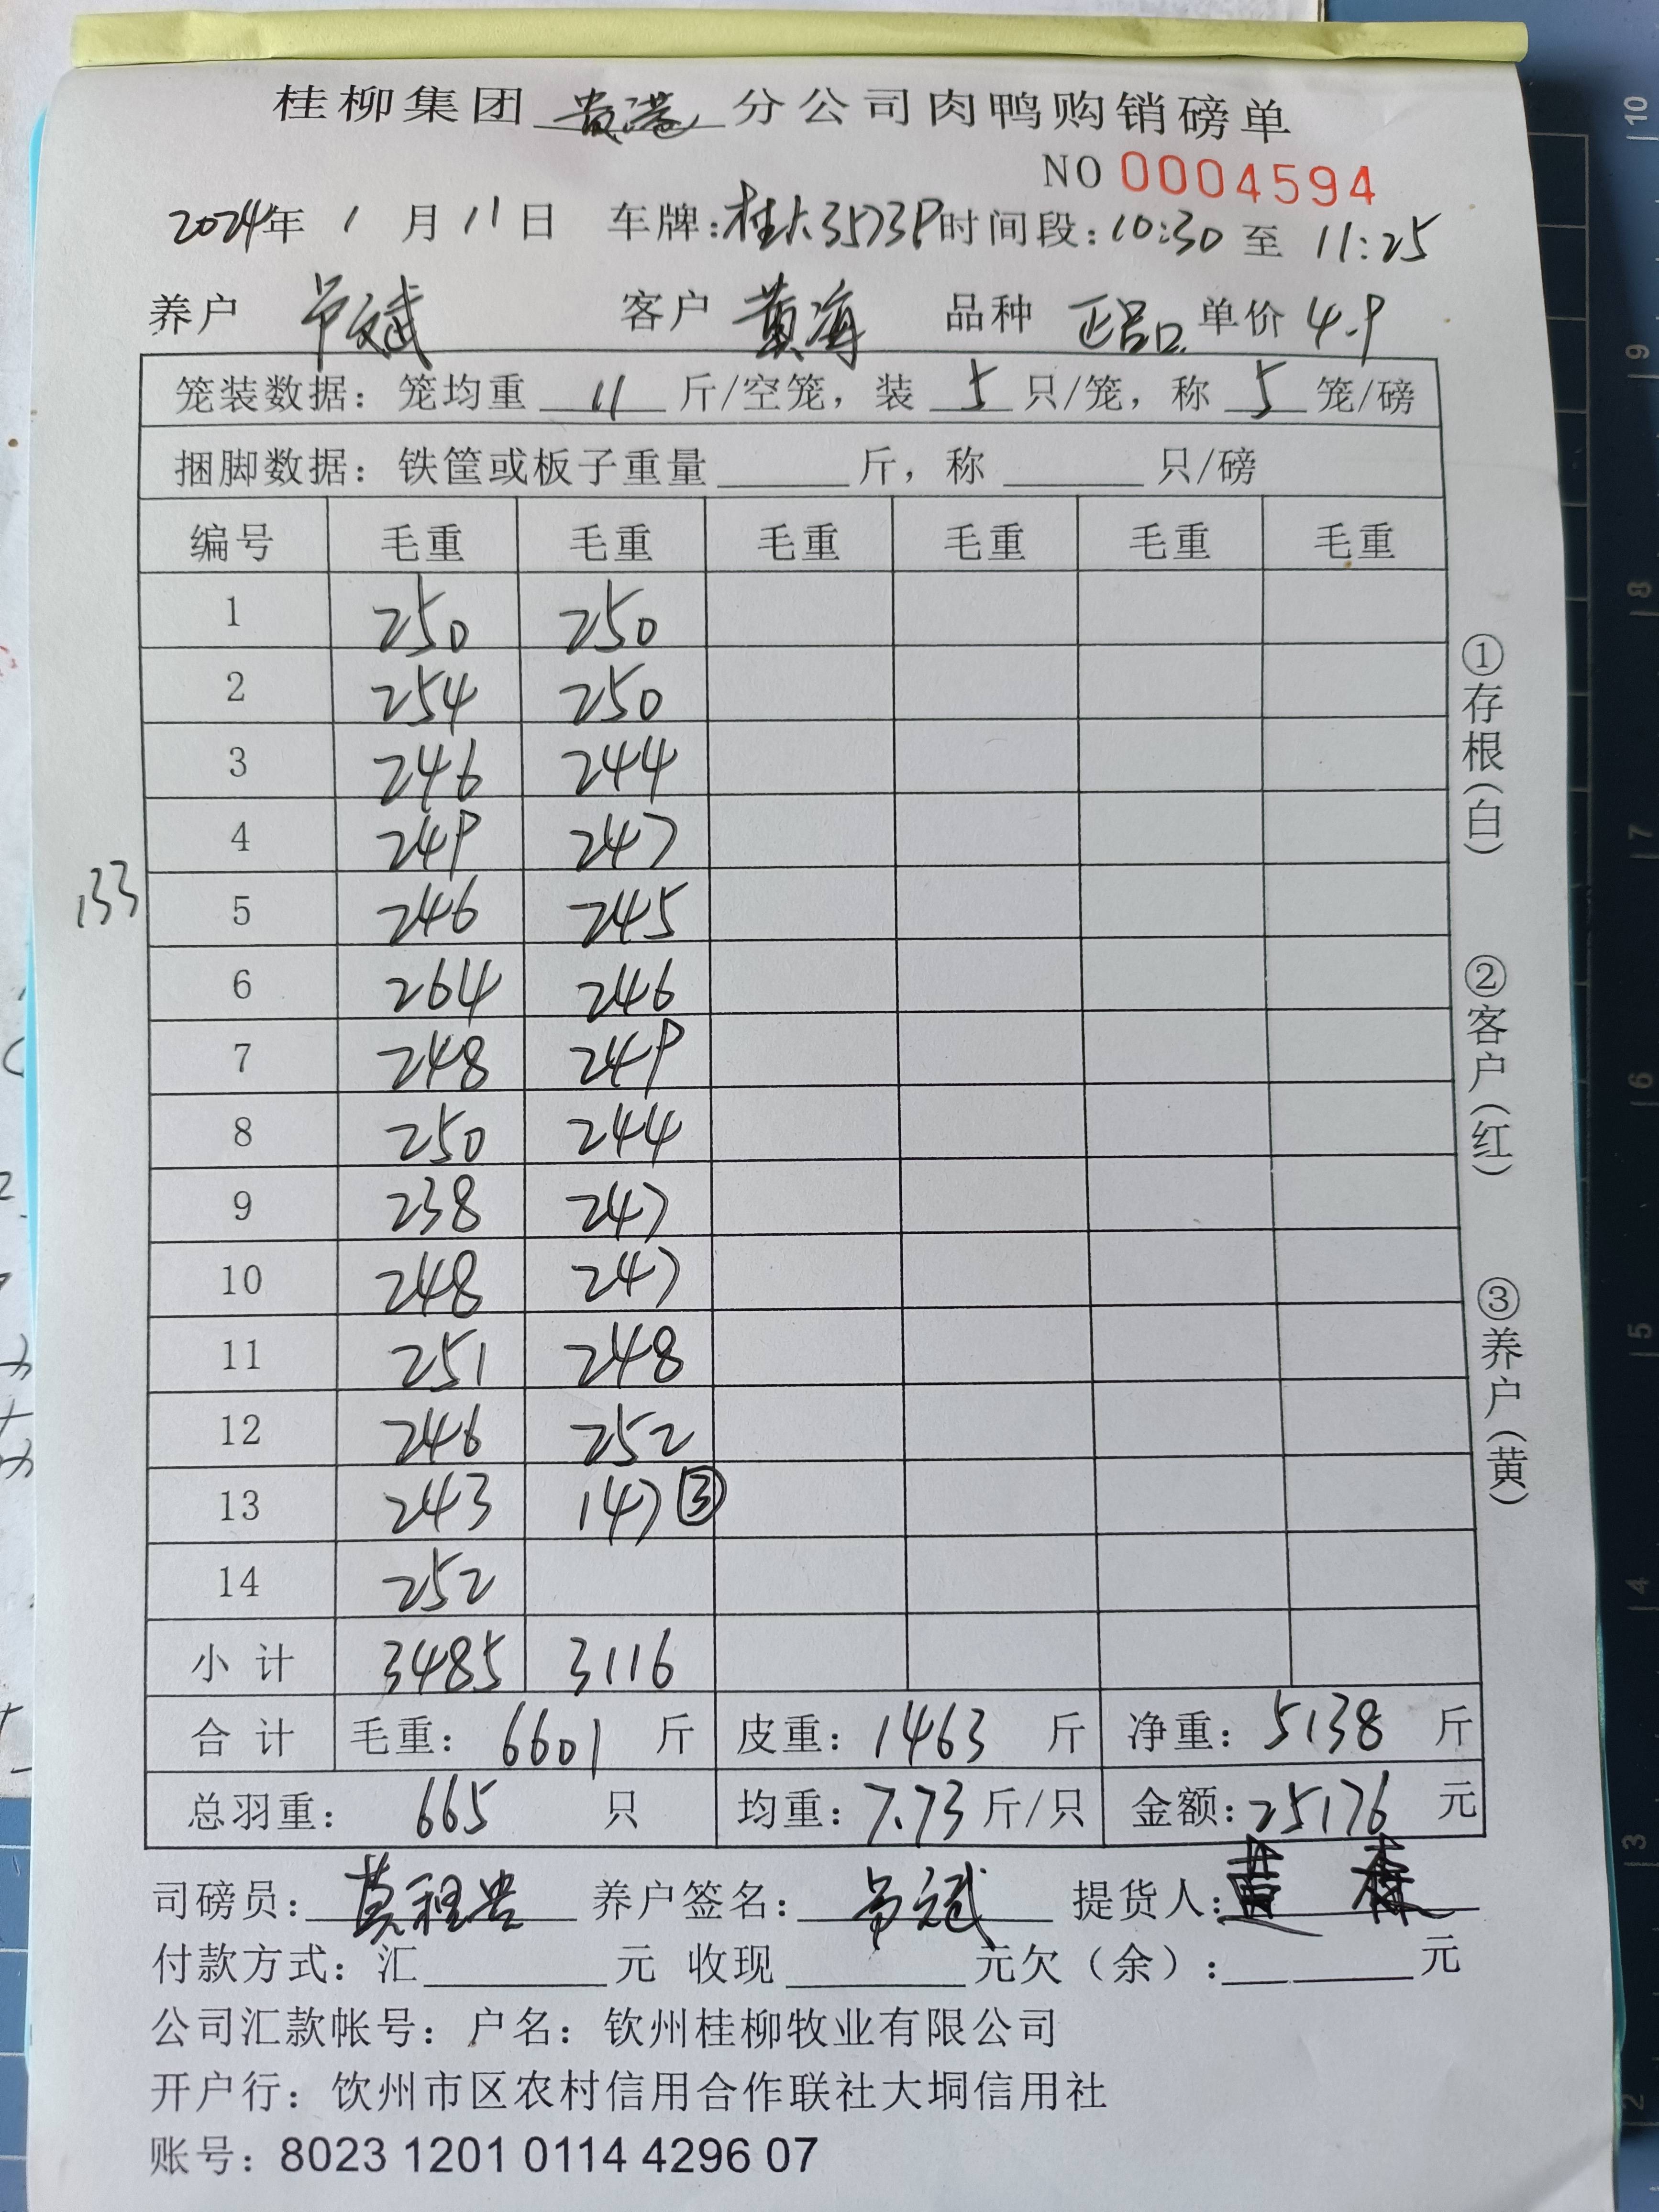 桂柳集团 贵港 分公司肉鸭购销磅单
NO 0004594
2024年 1 月 11 日 车牌: 时间段: 10:30 至 11:25
养户 客户 黄海 品种 正品 单价 4.9
笼装数据: 笼均重 11 斤/空笼, 装 5 只/笼, 称 5 笼/磅
捆脚数据: 铁筐或板子重量 斤, 称 只/磅
编号 毛重 毛重 毛重 毛重 毛重 毛重
1 250 250
2 254 250
3 246 244
4 249 247
133
5 246 245
6 264 246
7 248 249
8 250 244
9 238 247
10 248 247
11 251 248
12 246 252
13 243 147 ③
14 252
小计 3485 3116
合计 毛重: 6601 斤 皮重: 1463 斤 净重: 5138 斤
总羽重: 665 只 均重: 7.73 斤/只 金额: 25176 元
司磅员: 养户签名: 提货人:
付款方式: 汇 元 收现 元欠(余): 元
公司汇款帐号: 户名: 钦州桂柳牧业有限公司
开户行: 饮州市区农村信用合作联社大垌信用社
账号: 8023 1201 0114 4296 07
①存根(白)
②客户(红)
③养户(黄)
10
9
8
7
6
5
4
3
2